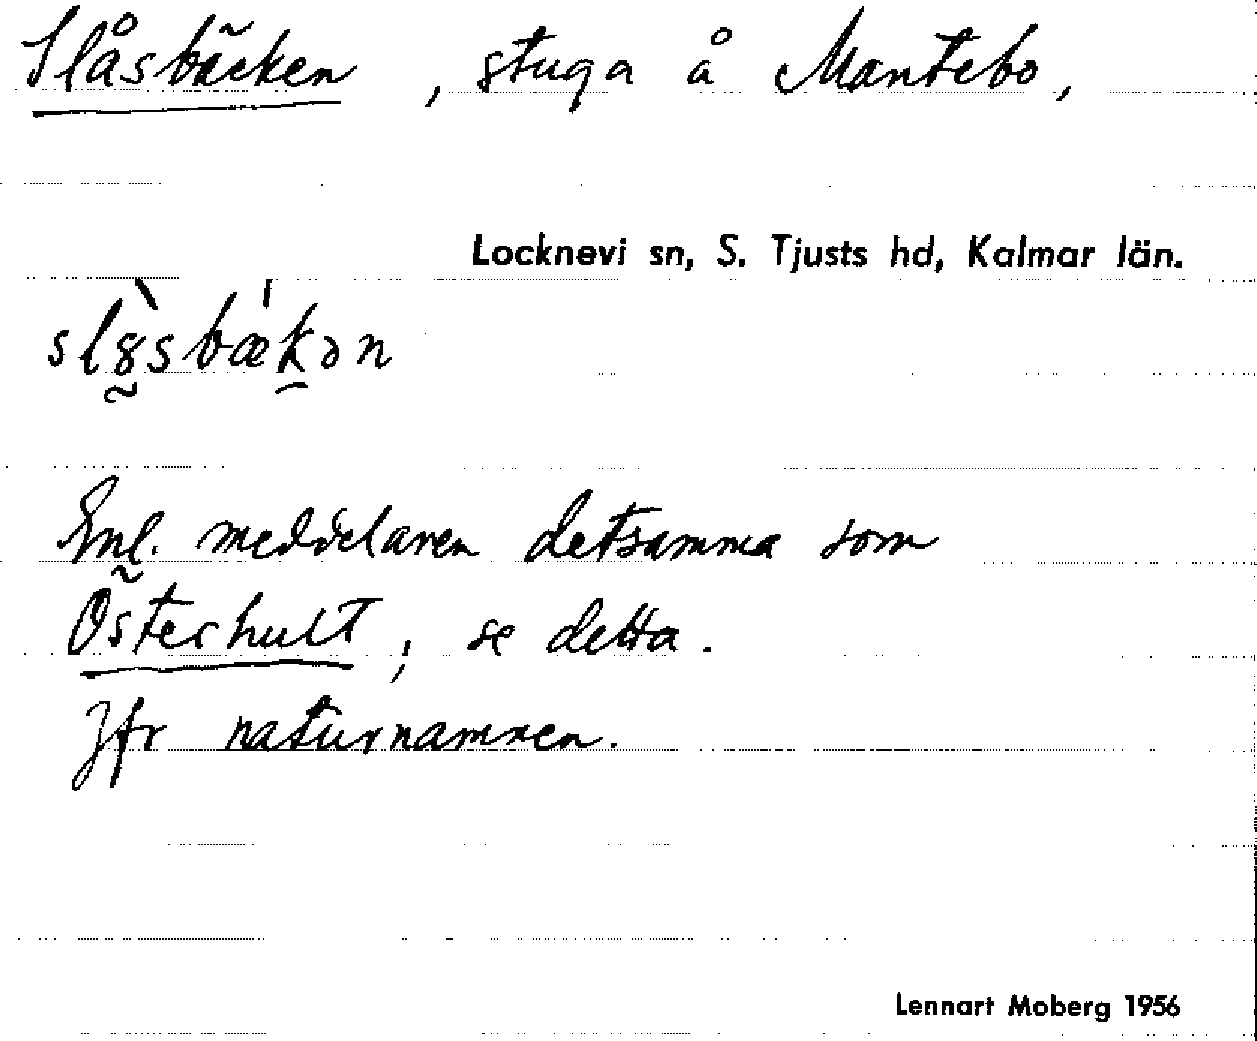 Slåsbäcken, stuga å Mantebo,
Locknevi sn, S. Tjusts hd, Kalmar län.
Enl. meddelaren detsamma som
Österhult, se detta.
Jfr naturnamnen.
Lennart Moberg 1956